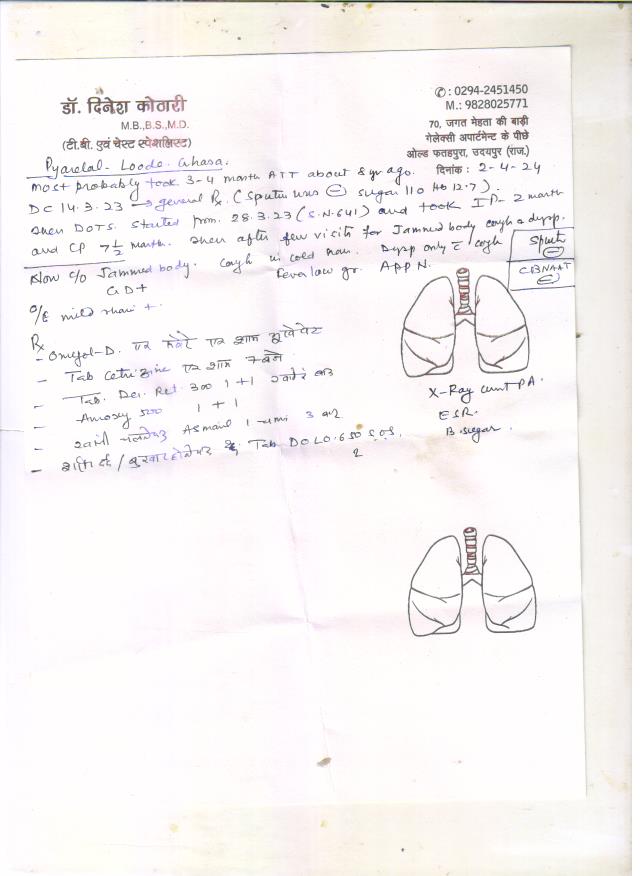 डॉ. दिनेश कोठारी
M.B.,B.S.,M.D.
(टी.बी. एवं चेस्ट स्पेशलिस्ट)
✆ : 0294-2451450
M.: 9828025771
70, जगत मेहता की बाड़ी
गेलेक्सी अपार्टमेन्ट के पीछे
ओल्ड फतहपुरा, उदयपुर (राज.)
दिनांक : 2-4-24
Pyarelal - Loode. Ghasa.
Most probably took 3-4 month ATT about 8 yr ago.
DC 14.3.23 → general Rx. (Sputum was ⊖ sugar 110 Hb 12.7).
then DOTS. started from. 28.3.23 (S.N.641) and took IP- 2 month
and CP 7 1/2 month. then after few visits for Jammed body cough & dysp.
Now c/o Jammed body. cough in cold. Dysp only c̄ cough
GD+ Fever low gr. APP N.
Sputum ⊖
CBNAAT ⊖
O/E mild +.
Rx
- Omyl-D. एक सवेरे एक शाम
- Tab Cetrizine एक शाम 7 बजे
- Tab. Ret. 300 1+1
- Amoxy 500 1 + 1
- Asmail 1 3 बार
- दर्द / बुखार होने पर Tab DOLO.650 S.O.S.
2
X-Ray PA.
ESR.
B.sugar.